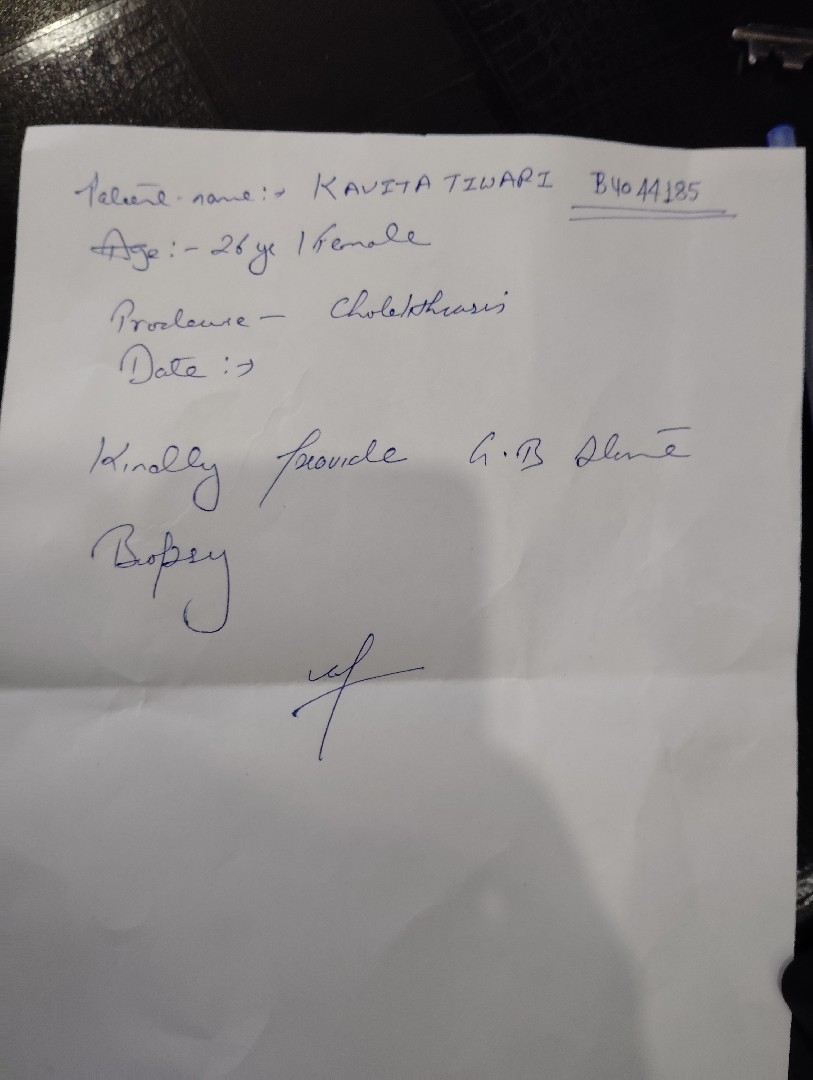 Patient name :→ KAVITA TIWARI B4044185
Age :- 26 yr / Female
Procleure — Cholelithiasis
Date :→
Kindly provide G.B
Biopsy